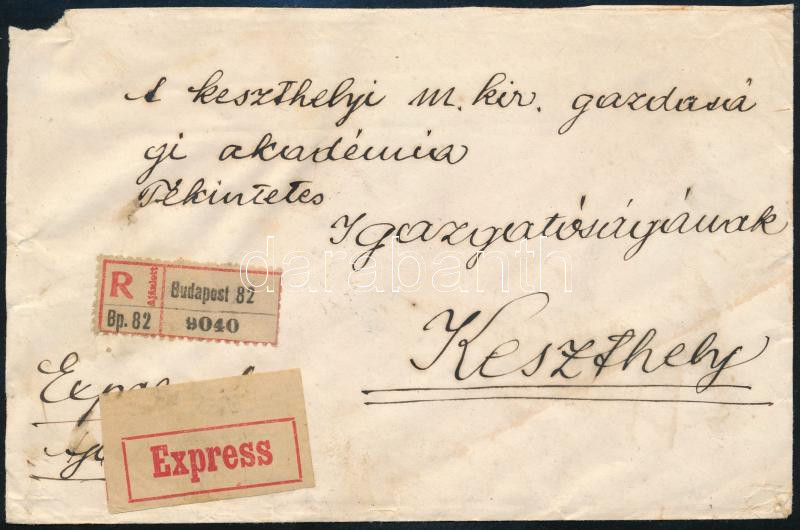 A keszthelyi m. kir. gazdasá
gi akadémia
Tekintetes
Igazgatóságának
Keszthely
R Ajánlott Budapest 82
Bp. 82 9040
Express
darabanth